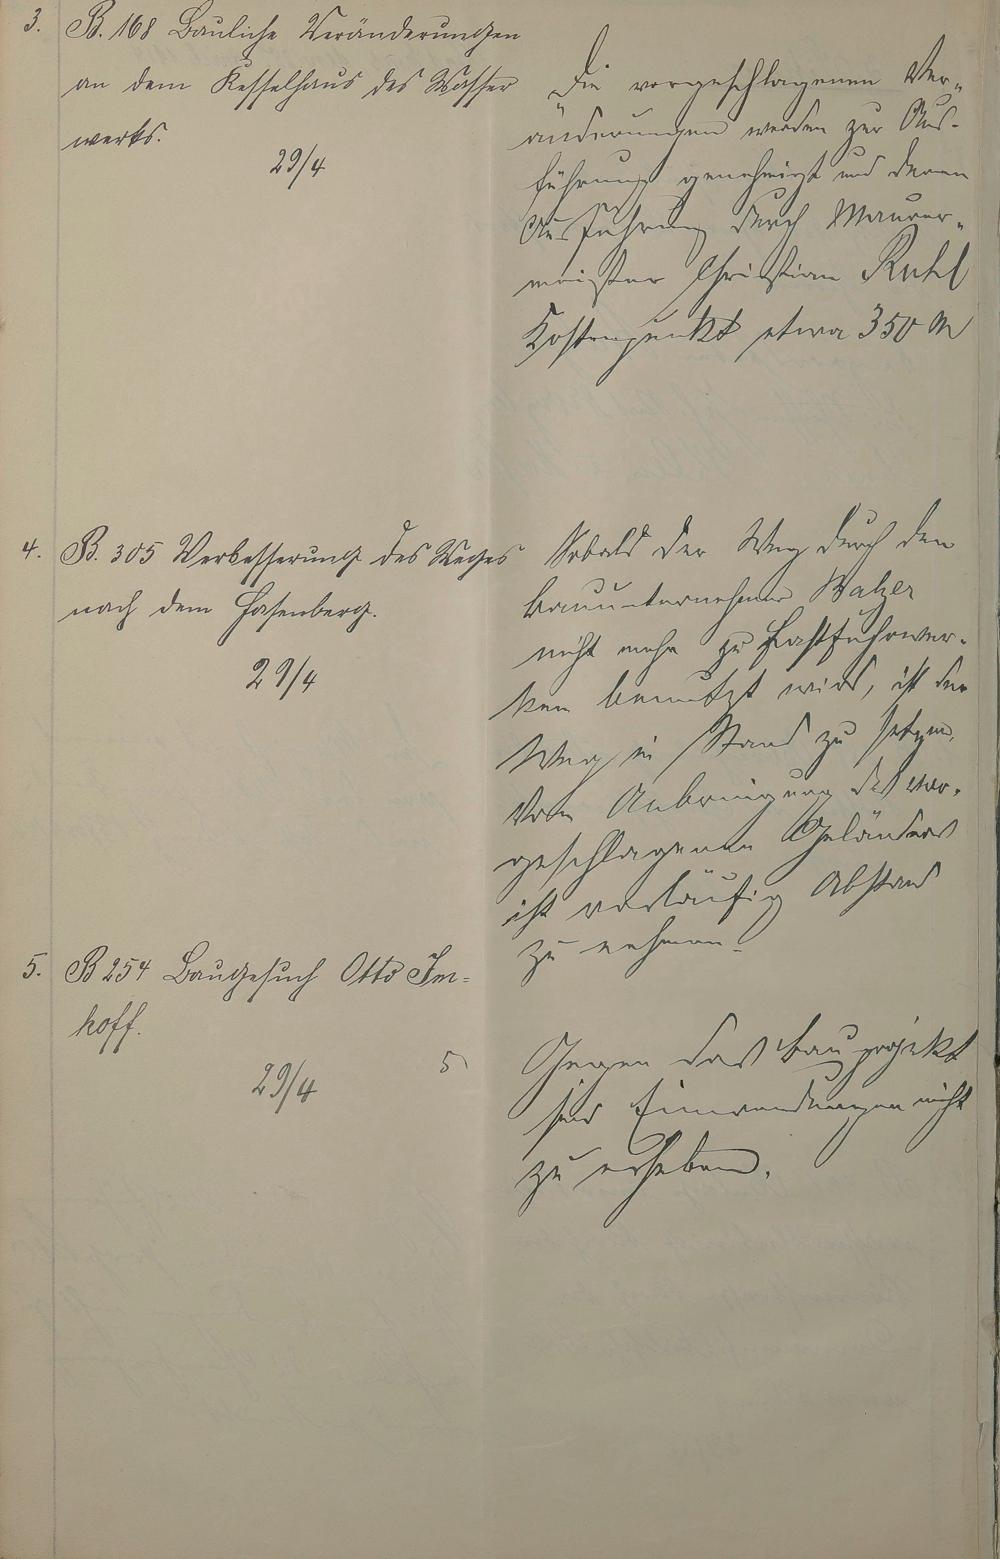 3. B. 168 Bauliche Veränderungen
an dem Kesselhaus des Wasser
werks.
29/4
Die vorgeschlagenen Ver-
änderungen werden zur Aus-
führung genehmigt und deren
Ausführung durch Maurer-
meister Christian Ruhl
Kostenpunkt etwa 350 M
4. B. 305 Verbesserung des Weges
nach dem Hasenberg.
29/4
Sobald der Weg durch den
Bauunternehmer Balzer
nicht mehr zu Lastfuhrwer-
ken benutzt wird, ist der
Weg in Stand zu setzen.
Von Anbringung des vor-
geschlagenen Geländers
ist vorläufig Abstand
zu nehmen.
5. B 254 Baugesuch Otto Im-
hoff.
29/4
5
Gegen das Bauprojekt
sind Einwendungen nicht
zu erheben.